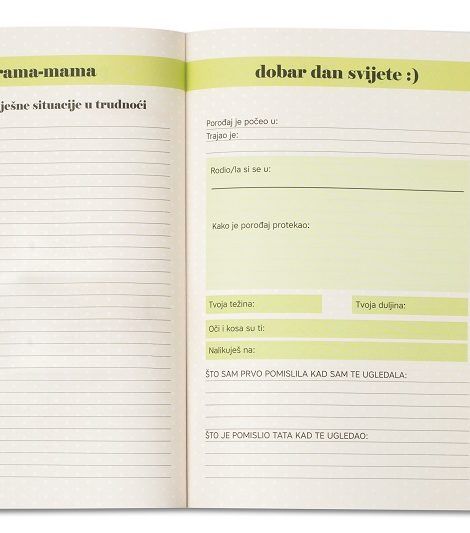 rama-mama
ješne situacije u trudnoći
dobar dan svijete :)
Porođaj je počeo u:
Trajao je:
Rodio/la si se u:
Kako je porođaj protekao:
Tvoja težina:
Tvoja duljina:
Oči i kosa su ti:
Nalikuješ na:
ŠTO SAM PRVO POMISLILA KAD SAM TE UGLEDALA:
ŠTO JE POMISLIO TATA KAD TE UGLEDAO: